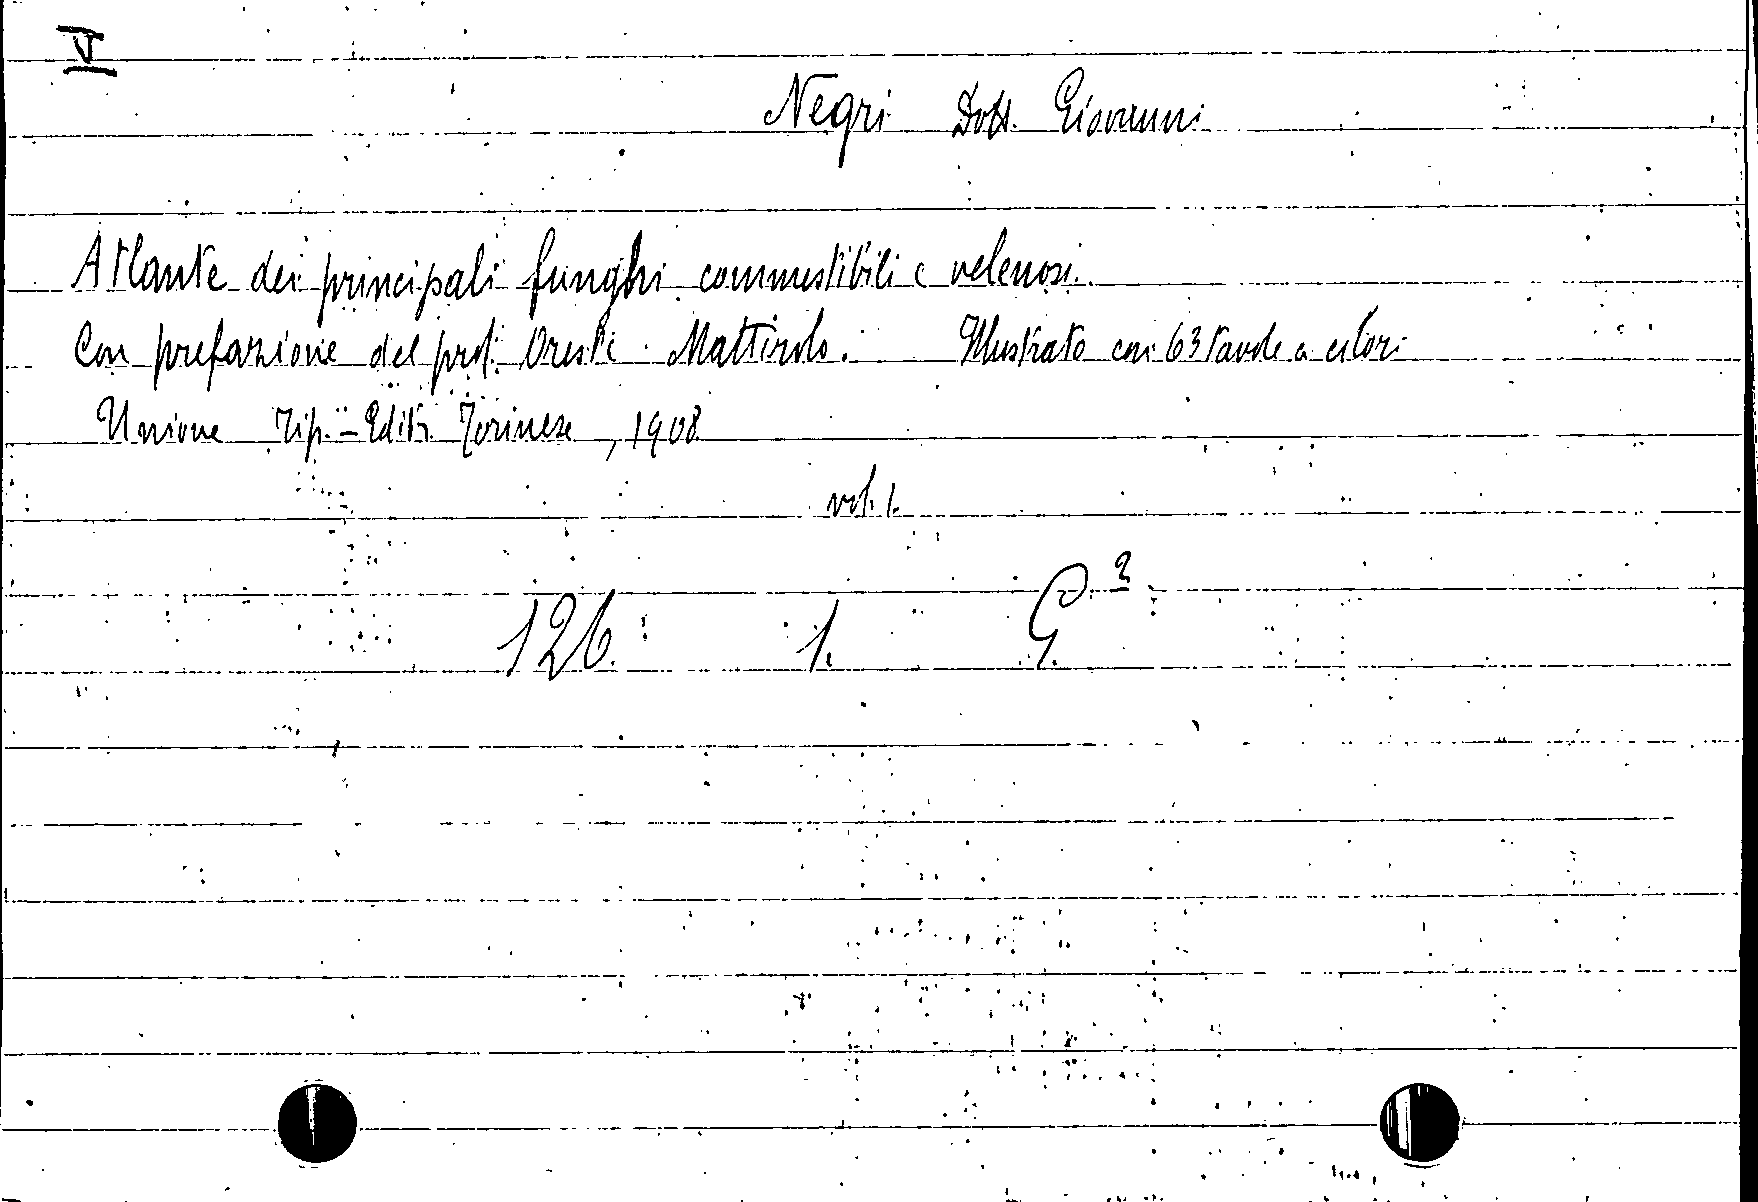 V
Negri Dott. Giovanni
Atlante dei principali funghi commestibili e velenosi.
Con prefazione del prof. Oreste Mattirolo. Illustrato con 63 tavole a colori
Unione Tip.-Editr. Torinese, 1908
vol. 1.
126. 1. G.²